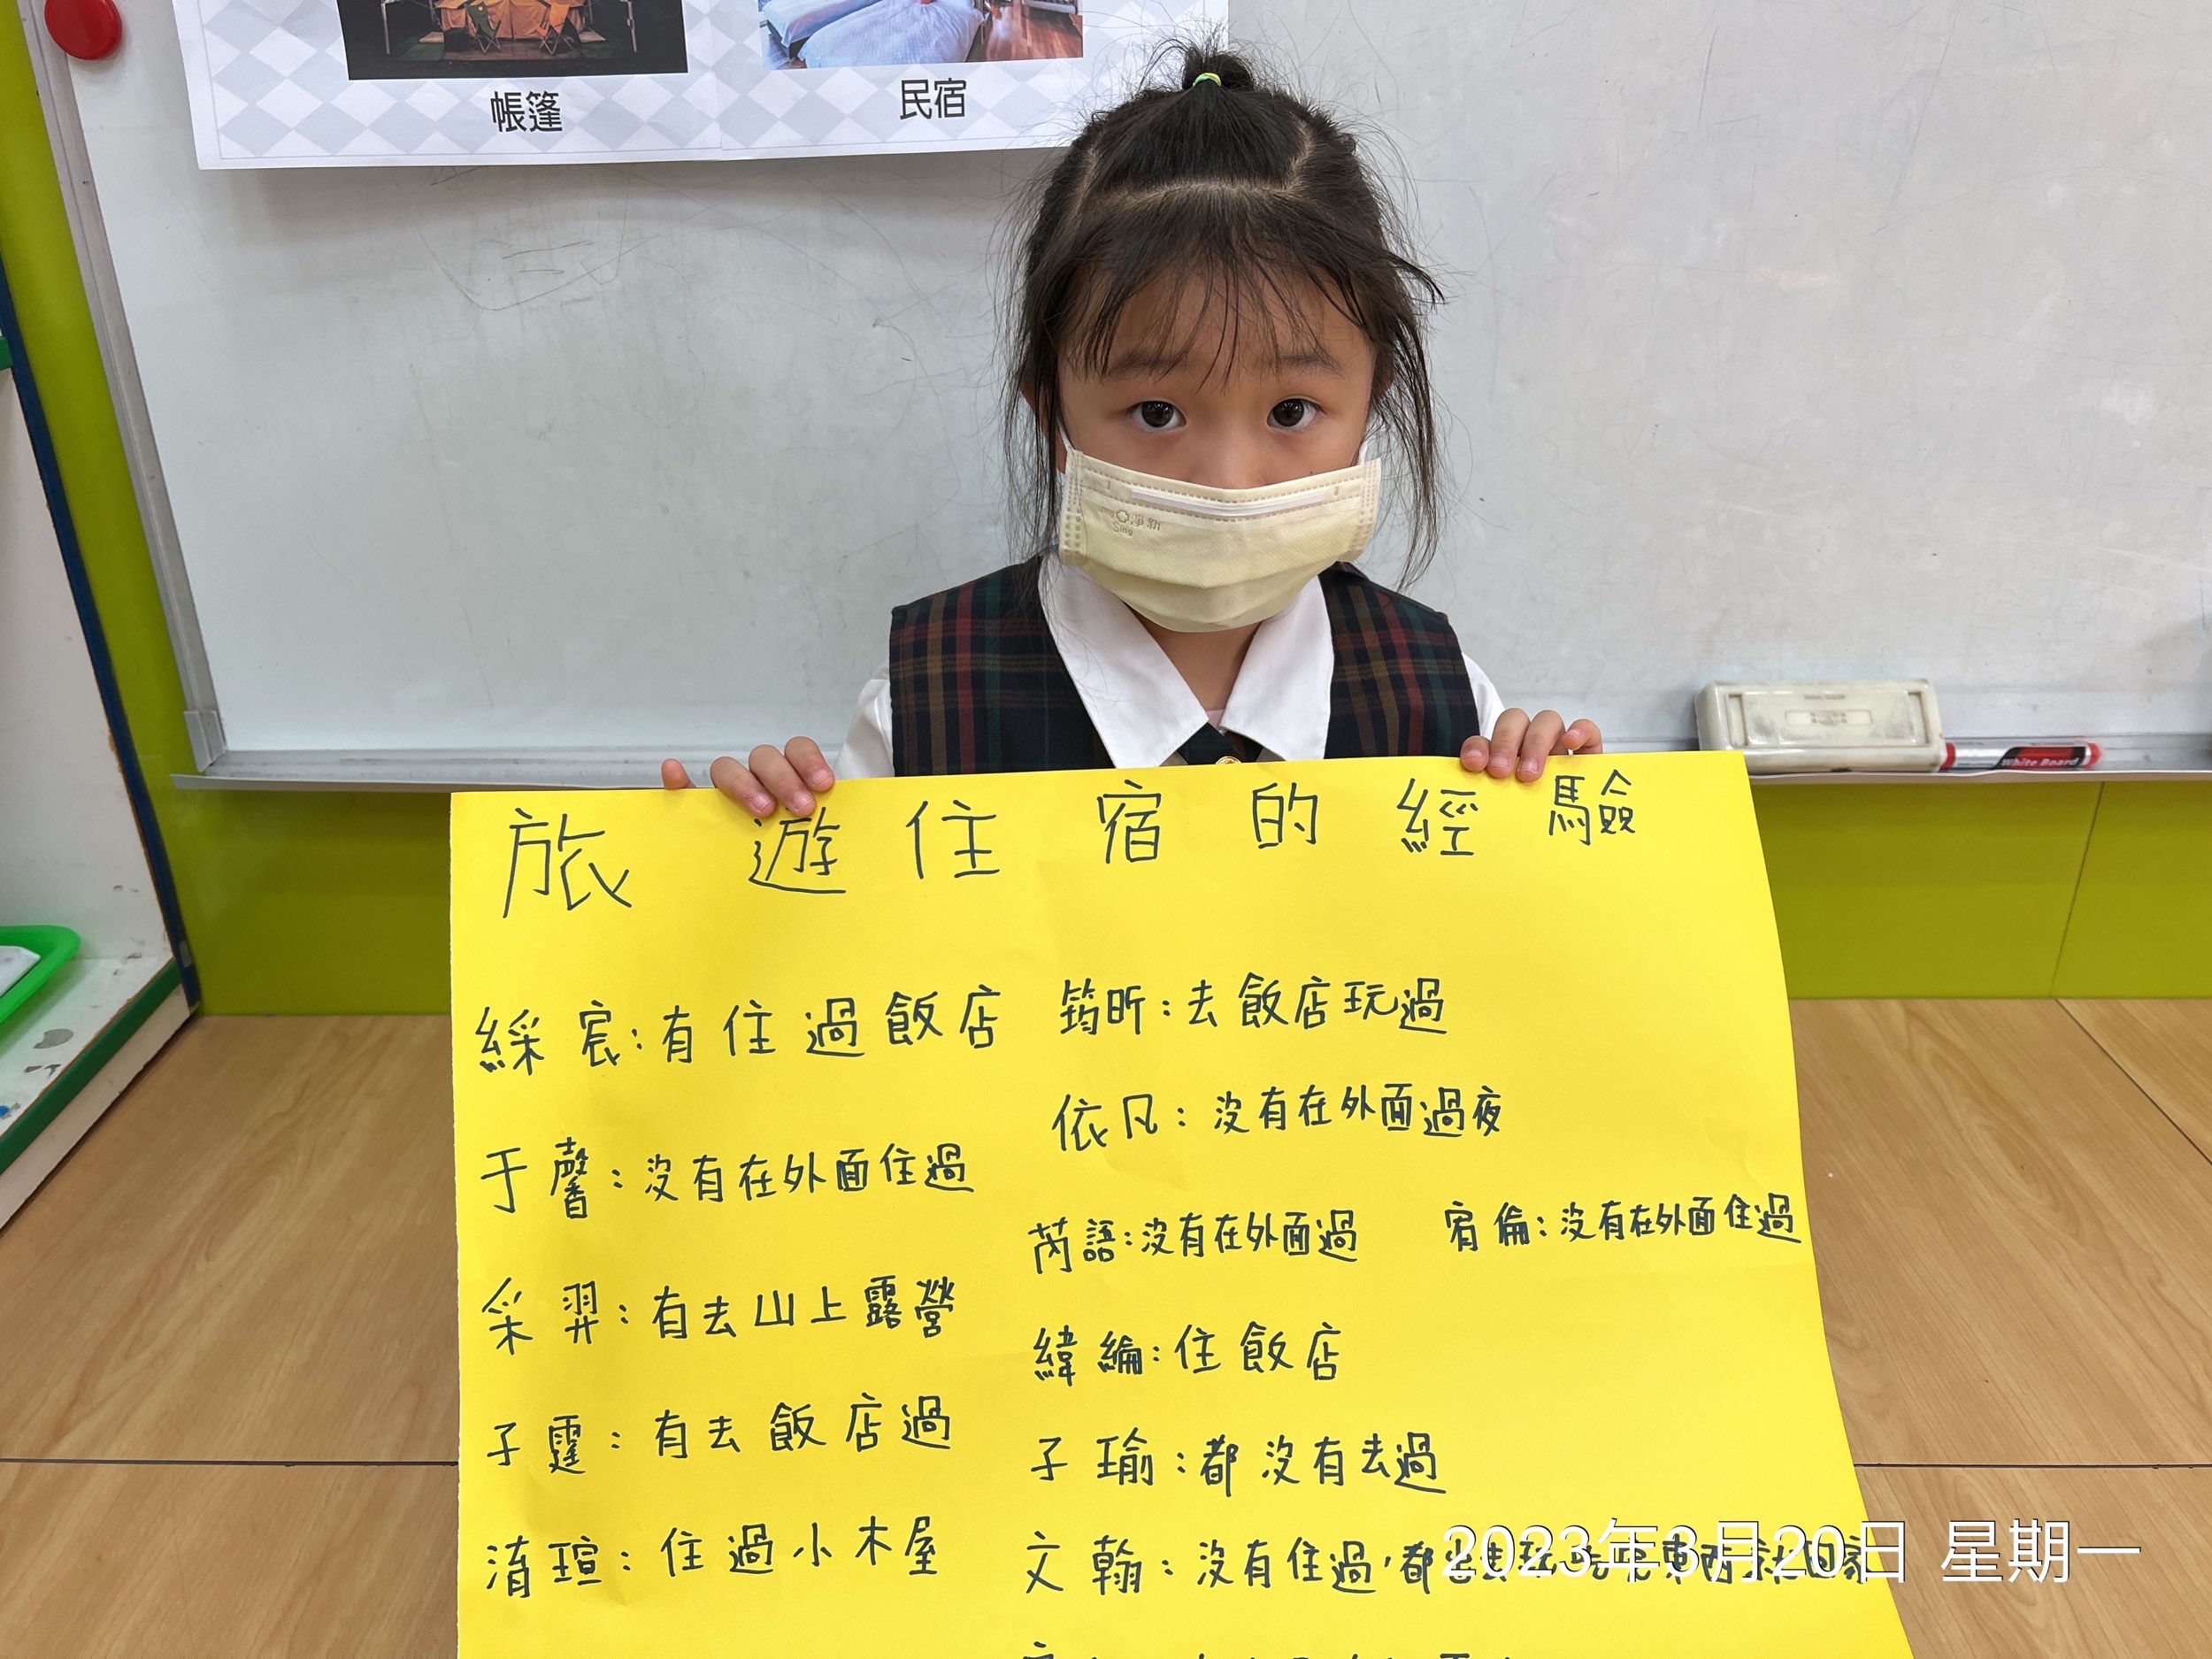 帳篷
民宿
淨新
Sing
White Board
旅遊住宿的經驗
綵宸:有住過飯店
于馨:沒有在外面住過
采羿:有去山上露營
子霆:有去飯店過
淯瑄:住過小木屋
筠昕:去飯店玩過
依凡:沒有在外面過夜
芮語:沒有在外面過
宥倫:沒有在外面住過
緯綸:住飯店
子瑜:都沒有去過
文翰:沒有住過,都
2023年3月20日 星期一